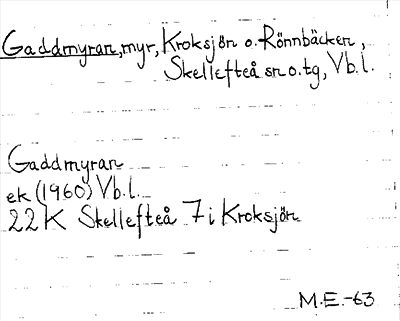 Gaddmyran, myr, Kroksjön o. Rönnbäcken,
Skellefteå sn o. tg, Vb. l.
Gaddmyran
ek (1960) Vb. l.
22 K Skellefteå 7 i Kroksjön
M.E.-63